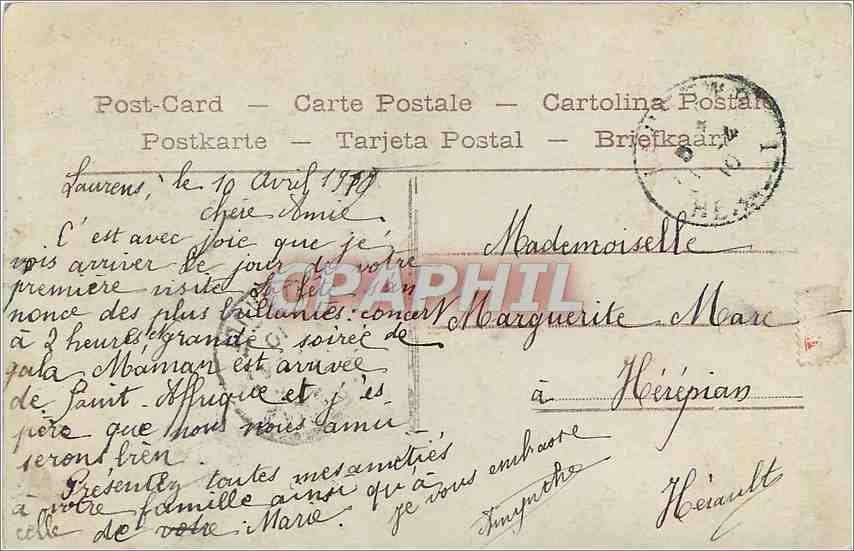 Post-Card — Carte Postale — Cartolina Postale
Postkarte — Tarjeta Postal — Briefkaart
Laurens, le 10 Avril 1910
chère Amie
C'est avec joie que je
vois arriver le jour de votre
première visite la fête s'an
nonce des plus brillantes: concert
à 2 heures et grande soirée de
gala Maman est arrivée
de Saint-Affrique et j'es-
père que nous nous amu-
serons bien.
Présentez toutes mes amitiés
à votre famille ainsi qu'à
celle de votre Marie.
je vous embrasse
Mademoiselle
Marguerite Marc
à Hérépian
Hérault
CPAPHIL